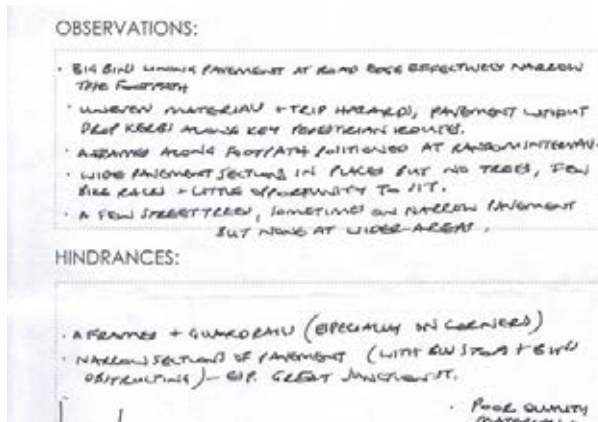 OBSERVATIONS:
· BIG BINS LINING PAVEMENT AT ROAD EDGE EFFECTIVELY NARROW
THE FOOTPATH
· UNEVEN MATERIALS + TRIP HAZARDS, PAVEMENT WITHOUT
DROP KERBS ALONG KEY PEDESTRIAN ROUTES.
· A-FRAMES ALONG FOOTPATH POSITIONED AT RANDOM INTERVALS
· WIDE PAVEMENT SECTIONS IN PLACES BUT NO TREES, FEW
BIKE RACKS + LITTLE OPPORTUNITY TO SIT.
· A FEW STREET TREES, SOMETIMES ON NARROW PAVEMENT
BUT NONE AT WIDER AREAS.
HINDRANCES:
· A FRAMES + GUARDRAILS (ESPECIALLY ON CORNERS)
· NARROW SECTIONS OF PAVEMENT (WITH BUS STOPS + BINS
OBSTRUCTING) – ESP. GREAT JUNCTION ST.
· POOR QUALITY
MATERIALS